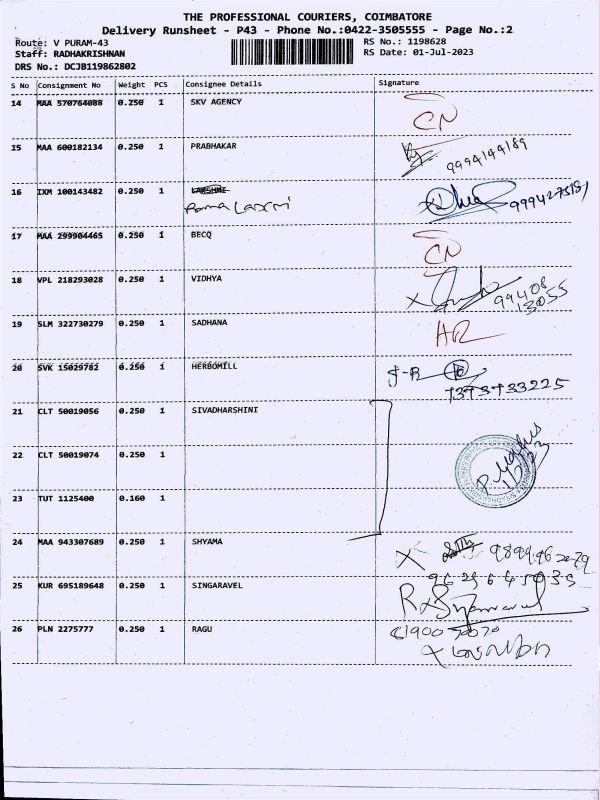 THE PROFESSIONAL COURIERS, COIMBATORE
Delivery Runsheet - P43 - Phone No.:0422-3505555 - Page No.:2
Route: V PURAM-43 RS No.: 1198628
Staff: RADHAKRISHNAN RS Date: 01-Jul-2023
DRS No.: DCJB119862802
S No Consignment No Weight PCS Consignee Details Signature
14 MAA 570764088 0.250 1 SKV AGENCY CN
15 MAA 600182134 0.250 1 PRABHAKAR 9994144189
16 IXM 100143482 0.250 1 LAKSHMI
Rama Laxmi
17 MAA 299904465 0.250 1 BECQ CN
18 VPL 218293028 0.250 1 VIDHYA 99408
13055
19 SLM 322730279 0.250 1 SADHANA
20 SVK 15029782 0.250 1 HERBOMILL
7373733225
21 CLT 50019056 0.250 1 SIVADHARSHINI
22 CLT 50019074 0.250 1
23 TUT 1125400 0.160 1
24 MAA 943307689 0.250 1 SHYAMA
25 KUR 695189648 0.250 1 SINGARAVEL
26 PLN 2275777 0.250 1 RAGU